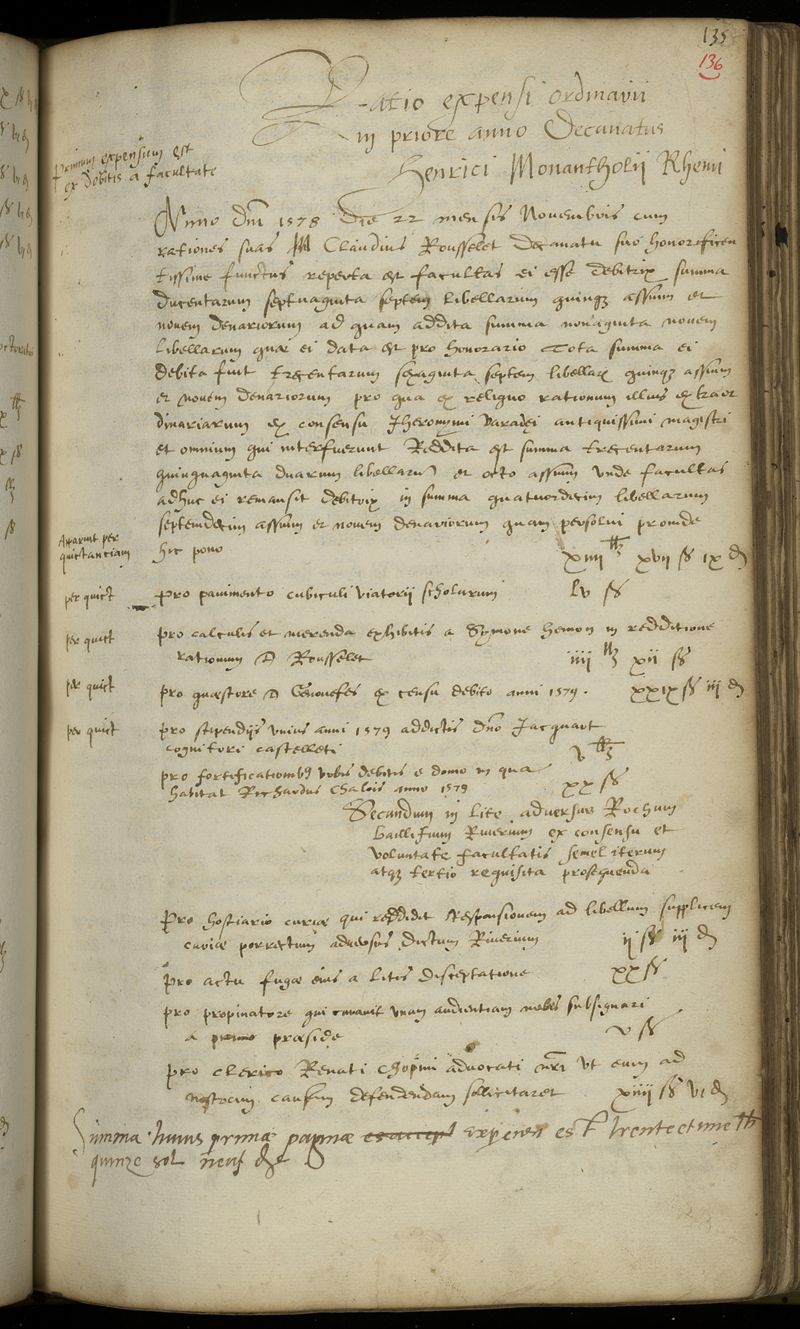 135
136
Ratio expensi ordinarii
in priore anno Decanatus
Henrici Monantholii Rhemi
Primum expensum est
ex debitis a facultate
Anno dni 1578 die 22 mensis Novembris cum
rationes suas M Claudius Rousselet decanatu suo honorificen
tissime functus reperta est facultas ei esse debitrix summa
ducentarum septuaginta septem libellarum quinqz assium et
novem denariorum ad quam addita summa nonaginta novem
libellarum quae ei data est pro honorario Tota summa ei
debita fuit trecentarum septem libellar quinqz assium
et novem denariorum pro qua ex reliquo rationum illius extraor
dinariarum ex consensu Jheronymi Varadei antiquissimi magistri
et omnium qui interfuerunt Reddita est summa trecentarum
quinquaginta duarum libellaru et octo assium unde facultas
adhuc ei remansit debitrix in summa quatuordecim libellarum
septemdecim assium et novem denariorum quam persolui proinde
hic pono
Apparuit per
quictanciam
xiiii lb xvii ss ix d
per quict
pro pavimento cubiculi viatorii scholarum lv ss
per quict
pro calculis et merenda exhibitis a Symone Hemon in redditione
rationum D Rousselet iiii lb xii ss
per quict
pro quaestore D Genovefes ex censu debito anni 1579. xxix ss iii d
per quict
pro stipendiis unius anni 1579 addictis dno Jacquart
cognitori castelleti v lb
pro fortificationibus urbis debitis e domo in qua
habitat Richardus Chalois anno 1579 xx ss
Secundum in lite adversus Rochum
baillifum Riverium ex consensu et
voluntate facultatis semel iterum
atqz tertio requisita prosequenda
Pro hostiario curiae qui reddidit responsionem ad libellum supplicem
curiae porrectum adversus dictum Riverium ii ss iii d
Pro actu fugae eius a litis disceptatione xx ss
pro propinatore qui curavit unam audientiam nobis subsignari
a primo praeside v ss
pro clerico Renati Chopini advocati nri ut eum ad
nostram causam defendendam sollicitaret xiiii ss vi d
Summa huius primae paginae expensi est trente et une lb
quinze sol neuf d